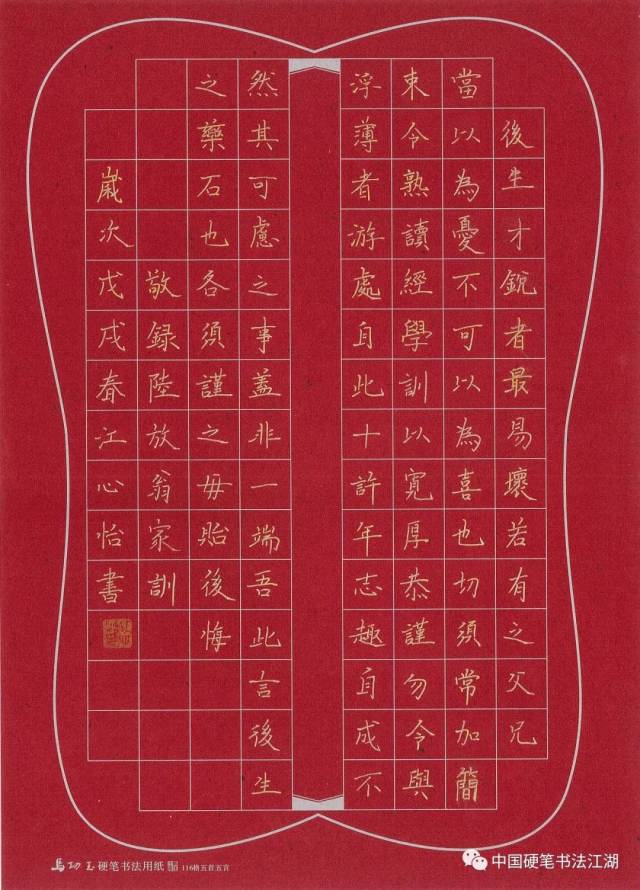 後生才銳者最易壞若有之父兄
當以為憂不可以為喜也切須常加簡
束令熟讀經學訓以寬厚恭謹勿令與
浮薄者游處自此十許年志趣自成不
然其可慮之事蓋非一端吾此言後生
之藥石也各須謹之毋貽後悔
敬録陸放翁家訓
歲次戊戌春江心怡書
马功玉硬笔书法用纸 116格五言五言
中国硬笔书法江湖